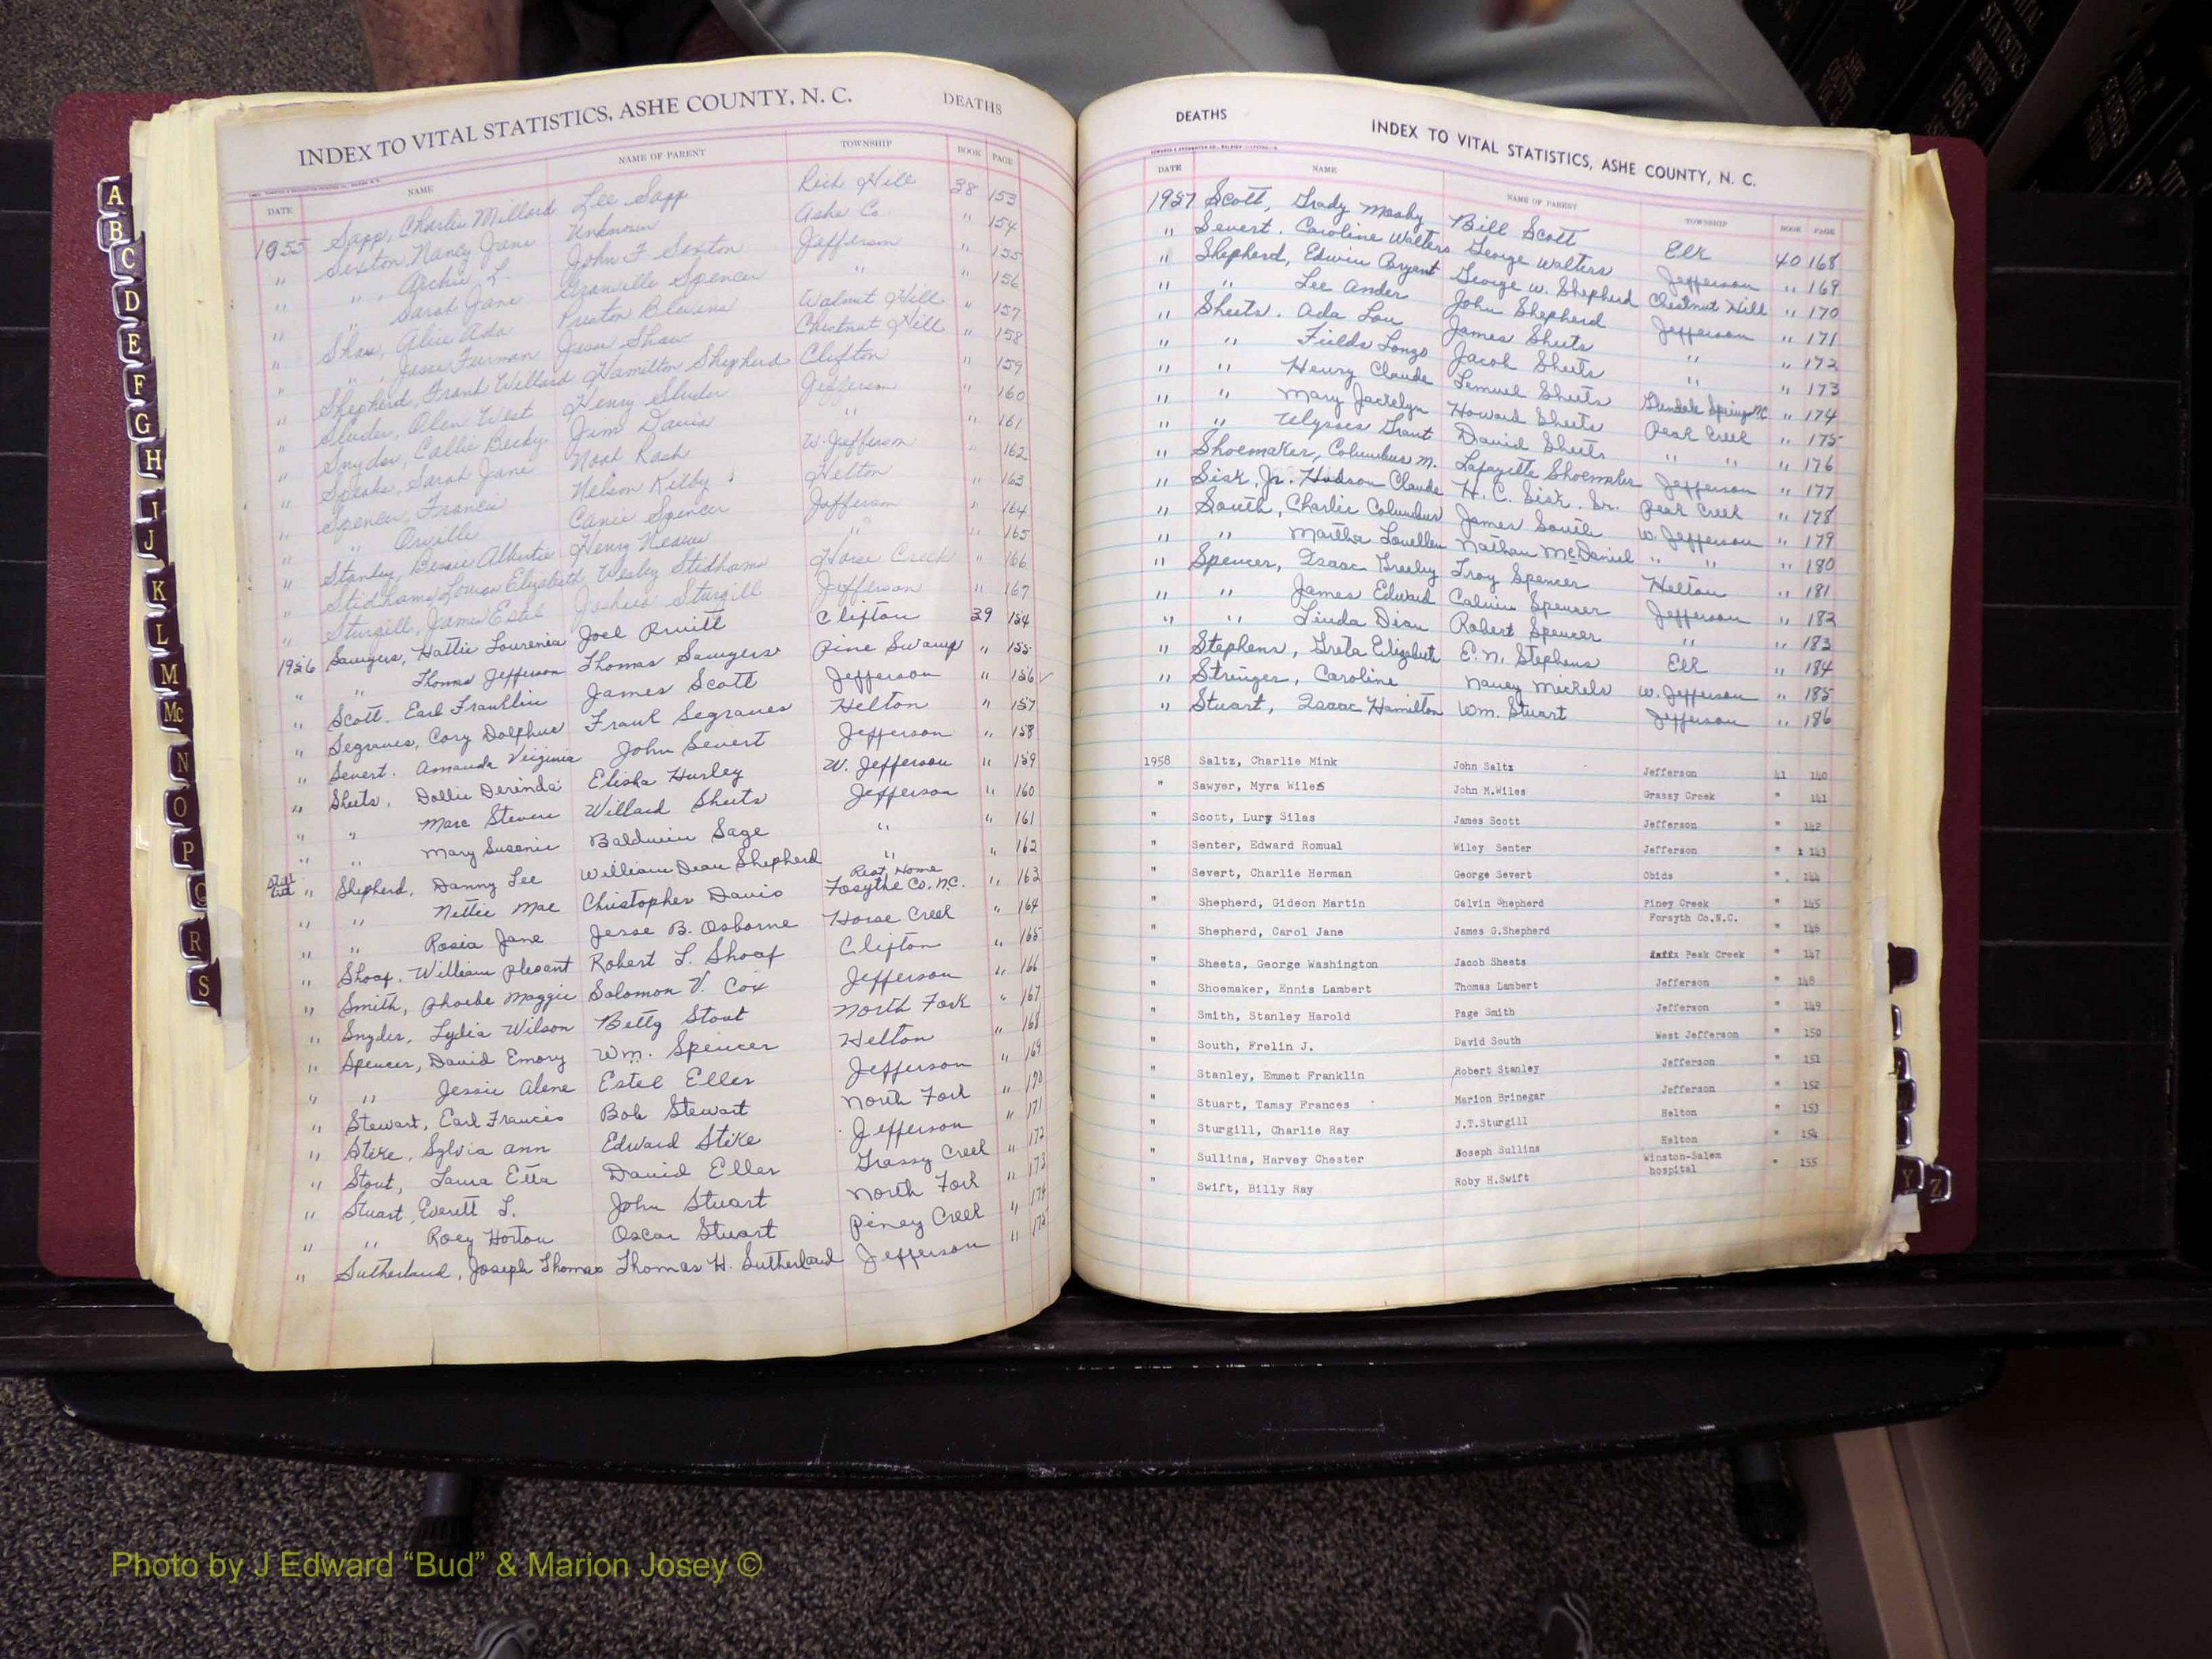 INDEX TO VITAL STATISTICS, ASHE COUNTY, N. C. DEATHS
DATE NAME NAME OF PARENT TOWNSHIP BOOK PAGE
1955 Sapp, Charlie Millard Lee Sapp Rich Hill 38 153
" Sexton, Nancy Jane Unknown Ashe Co. " 154
" " , Archie L. John F. Sexton Jefferson " 155
" " Sarah Jane Granville Spencer " " 156
" Shaw, Alice Ada Preston Blevins Walnut Hill " 157
" " , Jesse Furman Jesse Shaw Chestnut Hill " 158
" Shepherd, Frank Willard Hamilton Shepherd Clifton " 159
" Sluder, Olen West Henry Sluder Jefferson " 160
" Snyder, Callie Becky Jim Davis " " 161
" Speaks, Sarah Jane Noah Rash W. Jefferson " 162
" Spencer, Francis Nelson Kilby Helton " 163
" " Orville Canie Spencer Jefferson " 164
" Stanley, Bessie Albertie Henry Neaves " " 165
" Stidhams, Louisa Elizabeth Wesley Stidhams Horse Creek " 166
" Sturgill, James Estel Joshua Sturgill Jefferson " 167
1956 Sawyers, Hattie Lourenia Joel Pruitt Clifton 39 154
" " Thomas Jefferson Thomas Sawyers Pine Swamp " 155
" Scott. Earl Franklin James Scott Jefferson " 156 ✓
" Segraves, Cory Dolphus Frank Segraves Helton " 157
" Severt. Amanda Virginia John Severt Jefferson " 158
" Sheets, Dollie Derinda Elisha Hurley W. Jefferson " 159
" " Marc Steven Willard Sheets Jefferson " 160
" " Mary Susanie Baldwin Sage " " 161
" Shepherd, Danny Lee William Dean Shepherd " " 162
" " Nettie Mae Christopher Davis Rest Home Forsythe Co. N.C. " 163
" " Rosia Jane Jesse B. Osborne Horse Creek " 164
" Shoaf, William Plesant Robert L. Shoaf Clifton " 165
" Smith, Phoebe Maggie Solomon V. Cox Jefferson " 166
" Snyder, Lydia Wilson Betty Stout North Fork " 167
" Spencer, David Emory Wm. Spencer Helton " 168
" " Jessie Alene Estel Eller Jefferson " 169
" Stewart, Earl Francis Bob Stewart North Fork " 170
" Stike, Sylvia Ann Edward Stike Jefferson " 171
" Stout, Laura Etta David Eller Grassy Creek " 172
" Stuart, Everett L. John Stuart North Fork " 173
" " Roey Horton Oscar Stuart Piney Creek " 174
" Sutherland, Joseph Thomas Thomas H. Sutherland Jefferson " 175
A
B
C
D
E
F
G
H
I
J
K
L
M
Mc
N
O
P
Q
R
S
DEATHS INDEX TO VITAL STATISTICS, ASHE COUNTY, N. C.
DATE NAME NAME OF PARENT TOWNSHIP BOOK PAGE
1957 Scott, Grady Mosby Bill Scott Elk 40 168
" Severt. Caroline Walters George Walters Jefferson " 169
" Shepherd, Edwin Bryant George W. Shepherd Chestnut Hill " 170
" " Lee Ander John Shepherd Jefferson " 171
" Sheets. Ada Lou James Sheets " " 172
" " Fields Longo Jacob Sheets " " 173
" " Henry Claude Lemuel Sheets Glendale Springs NC " 174
" " Mary Jackelyn Howard Sheets Peak Creek " 175
" " Ulysses Grant David Sheets " " " 176
" Shoemaker, Columbus M. Lafayette Shoemaker Jefferson " 177
" Sisk, Jr. Hudson Claude H. C. Sisk. Sr. Peak Creek " 178
" South, Charlie Columbus James South W. Jefferson " 179
" " Martha Louellen Nathan McDaniel " " " 180
" Spencer, Isaac Greeley Troy Spencer Helton " 181
" " James Edward Calvin Spencer Jefferson " 182
" " Linda Dian Robert Spencer " " 183
" Stephens, Greta Elizabeth E. N. Stephens Elk " 184
" Stringer, Caroline Nancy Mickels W. Jefferson " 185
" Stuart, Isaac Hamilton Wm. Stuart Jefferson " 186
1958 Saltz, Charlie Mink John Saltz Jefferson 41 140
" Sawyer, Myra Wiles John M.Wiles Grassy Creek " 141
" Scott, Lury Silas James Scott Jefferson " 142
" Senter, Edward Romual Wiley Senter Jefferson " 143
" Severt, Charlie Herman George Severt Obids " 144
" Shepherd, Gideon Martin Calvin Shepherd Piney Creek " 145
" Shepherd, Carol Jane James G.Shepherd Forsyth Co.N.C. " 146
" Sheets, George Washington Jacob Sheets Peak Creek " 147
" Shoemaker, Ennis Lambert Thomas Lambert Jefferson " 148
" Smith, Stanley Harold Page Smith Jefferson " 149
" South, Frelin J. David South West Jefferson " 150
" Stanley, Emmet Franklin Robert Stanley Jefferson " 151
" Stuart, Tamsy Frances Marion Brinegar Jefferson " 152
" Sturgill, Charlie Ray J.T.Sturgill Helton " 153
" Sullins, Harvey Chester Joseph Sullins Helton " 154
" Swift, Billy Ray Roby H.Swift Winston-Salem hospital " 155
Y Z
VITAL STATISTICS BIRTHS 1963
Photo by J Edward “Bud” & Marion Josey ©